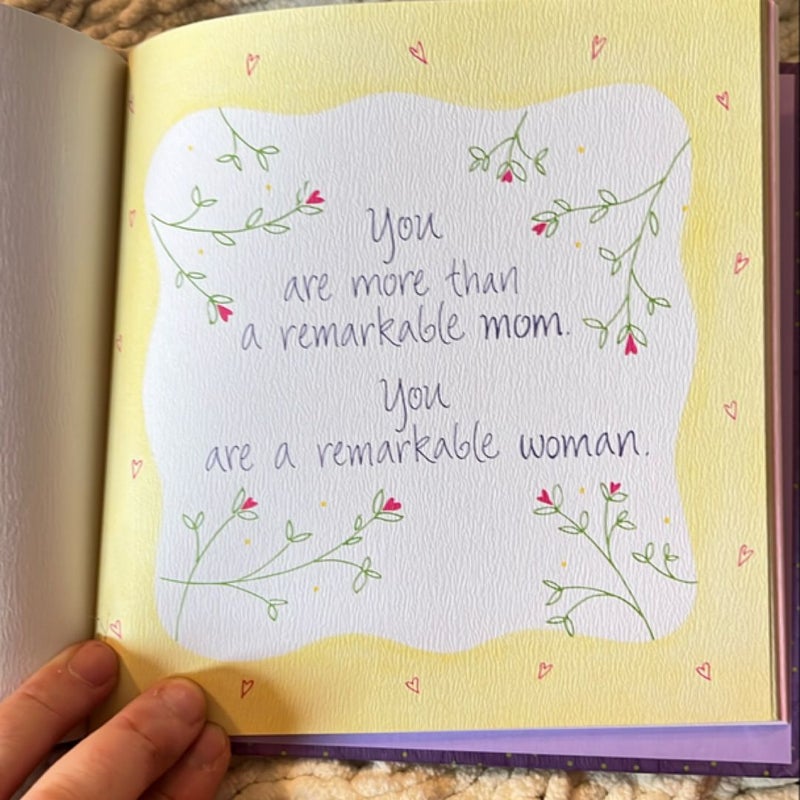 You
are more than
a remarkable mom.
You
are a remarkable woman.